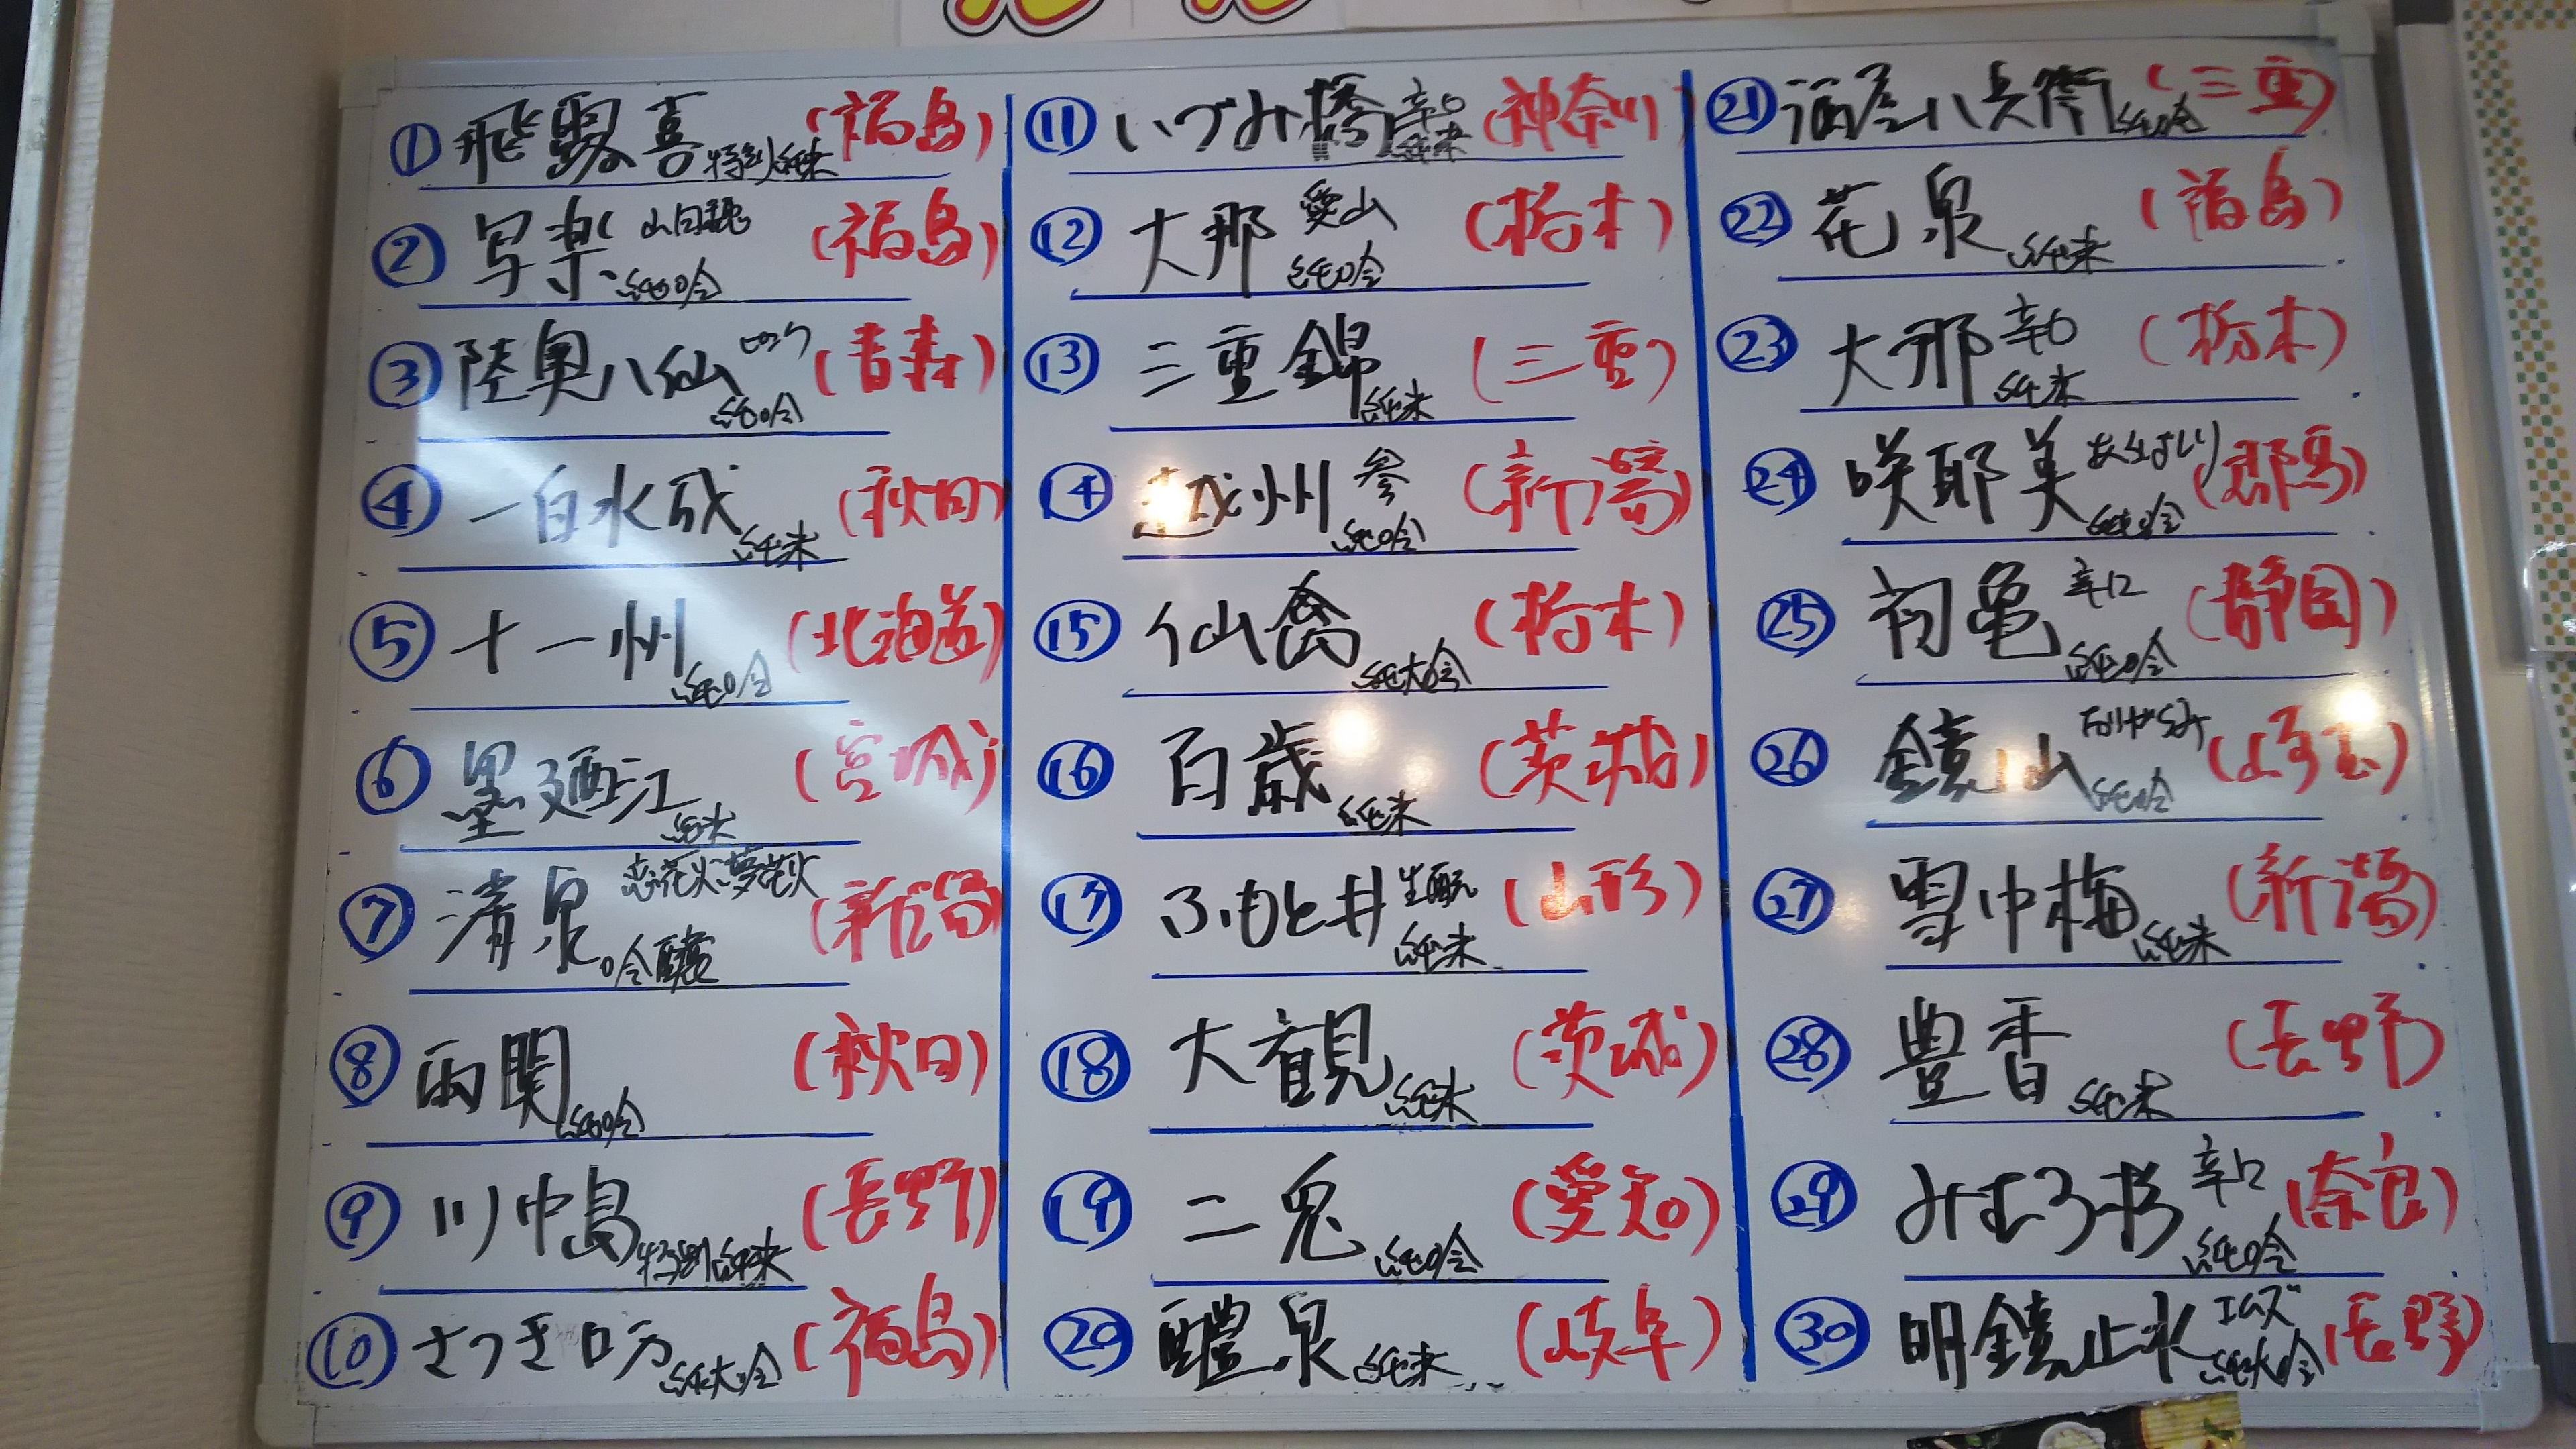 ① 飛露喜 特別純米 (福島)
② 写楽 山田穂 純吟 (福島)
③ 陸奥八仙 ピンク 純吟 (青森)
④ 一白水成 純米 (秋田)
⑤ 十一州 純吟 (北海道)
⑥ 墨廼江 純米 (宮城)
⑦ 清泉 恋花火 夢花火 吟醸 (新潟)
⑧ 両関 純吟 (秋田)
⑨ 川中島 特別純米 (長野)
⑩ さつき 純大吟 (福島)
⑪ いづみ橋 辛口 純米 (神奈川)
⑫ 大那 愛山 純吟 (栃木)
⑬ 三重錦 純米 (三重)
⑭ 越州 参 純吟 (新潟)
⑮ 仙禽 純大吟 (栃木)
⑯ 百歳 純米 (茨城)
⑰ ふもと井 生酛 純米 (山形)
⑱ 大観 純米 (茨城)
⑲ 二兎 純吟 (愛知)
⑳ 醴泉 純米 (岐阜)
㉑ 酒屋八兵衛 純吟 (三重)
㉒ 花泉 純米 (福島)
㉓ 大那 辛口 純米 (栃木)
㉔ 咲耶美 純吟 (郡馬)
㉕ 初亀 辛口 純吟 (静岡)
㉖ 鏡山 純吟 (埼玉)
㉗ 雪中梅 純米 (新潟)
㉘ 豊香 純米 (長野)
㉙ みむろ杉 辛口 純吟 (奈良)
㉚ 明鏡止水 エムズ 純大吟 (長野)